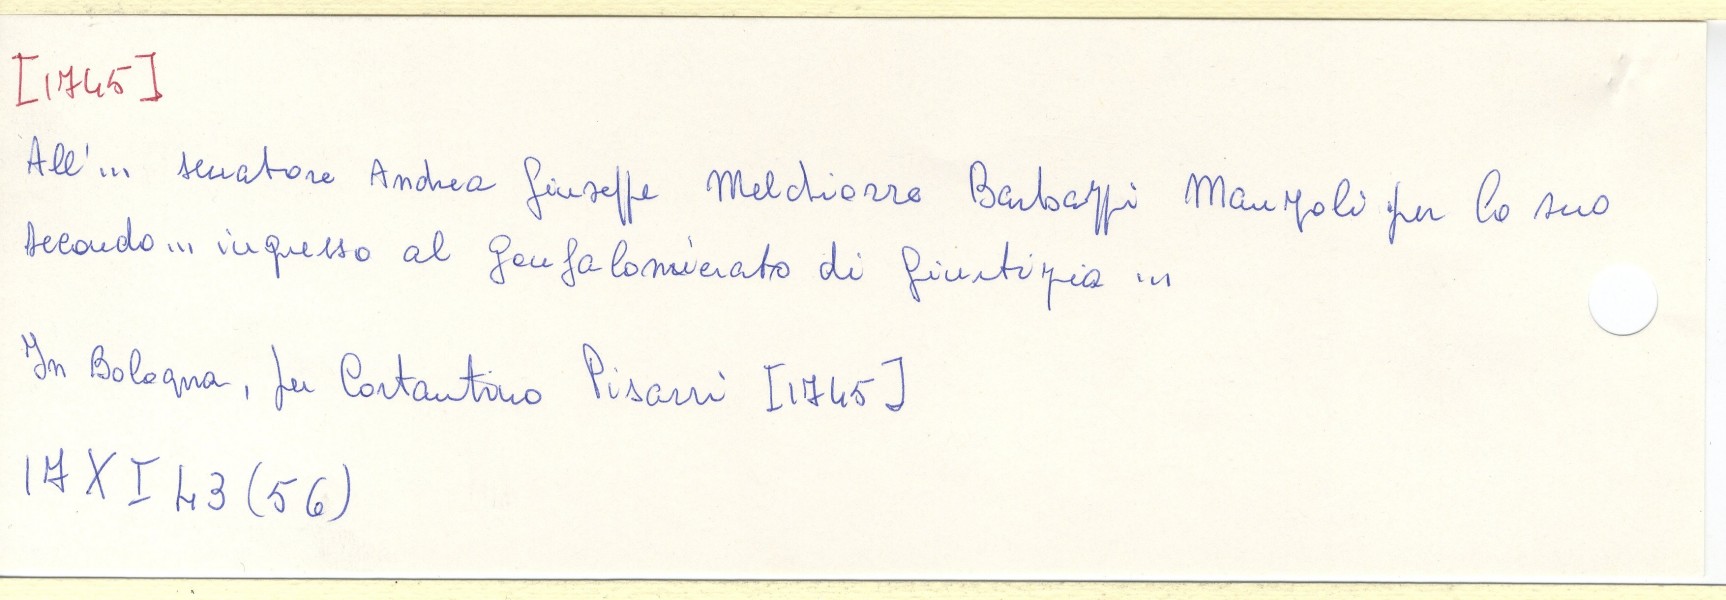 [1745]
All'... senatore Andrea Giuseppe Melchiorre Barbazzi Manzoli per lo suo
secondo... ingresso al gonfalonierato di Giustizia ...
In Bologna, per Costantino Pisarri [1745]
17 X I 43 (56)